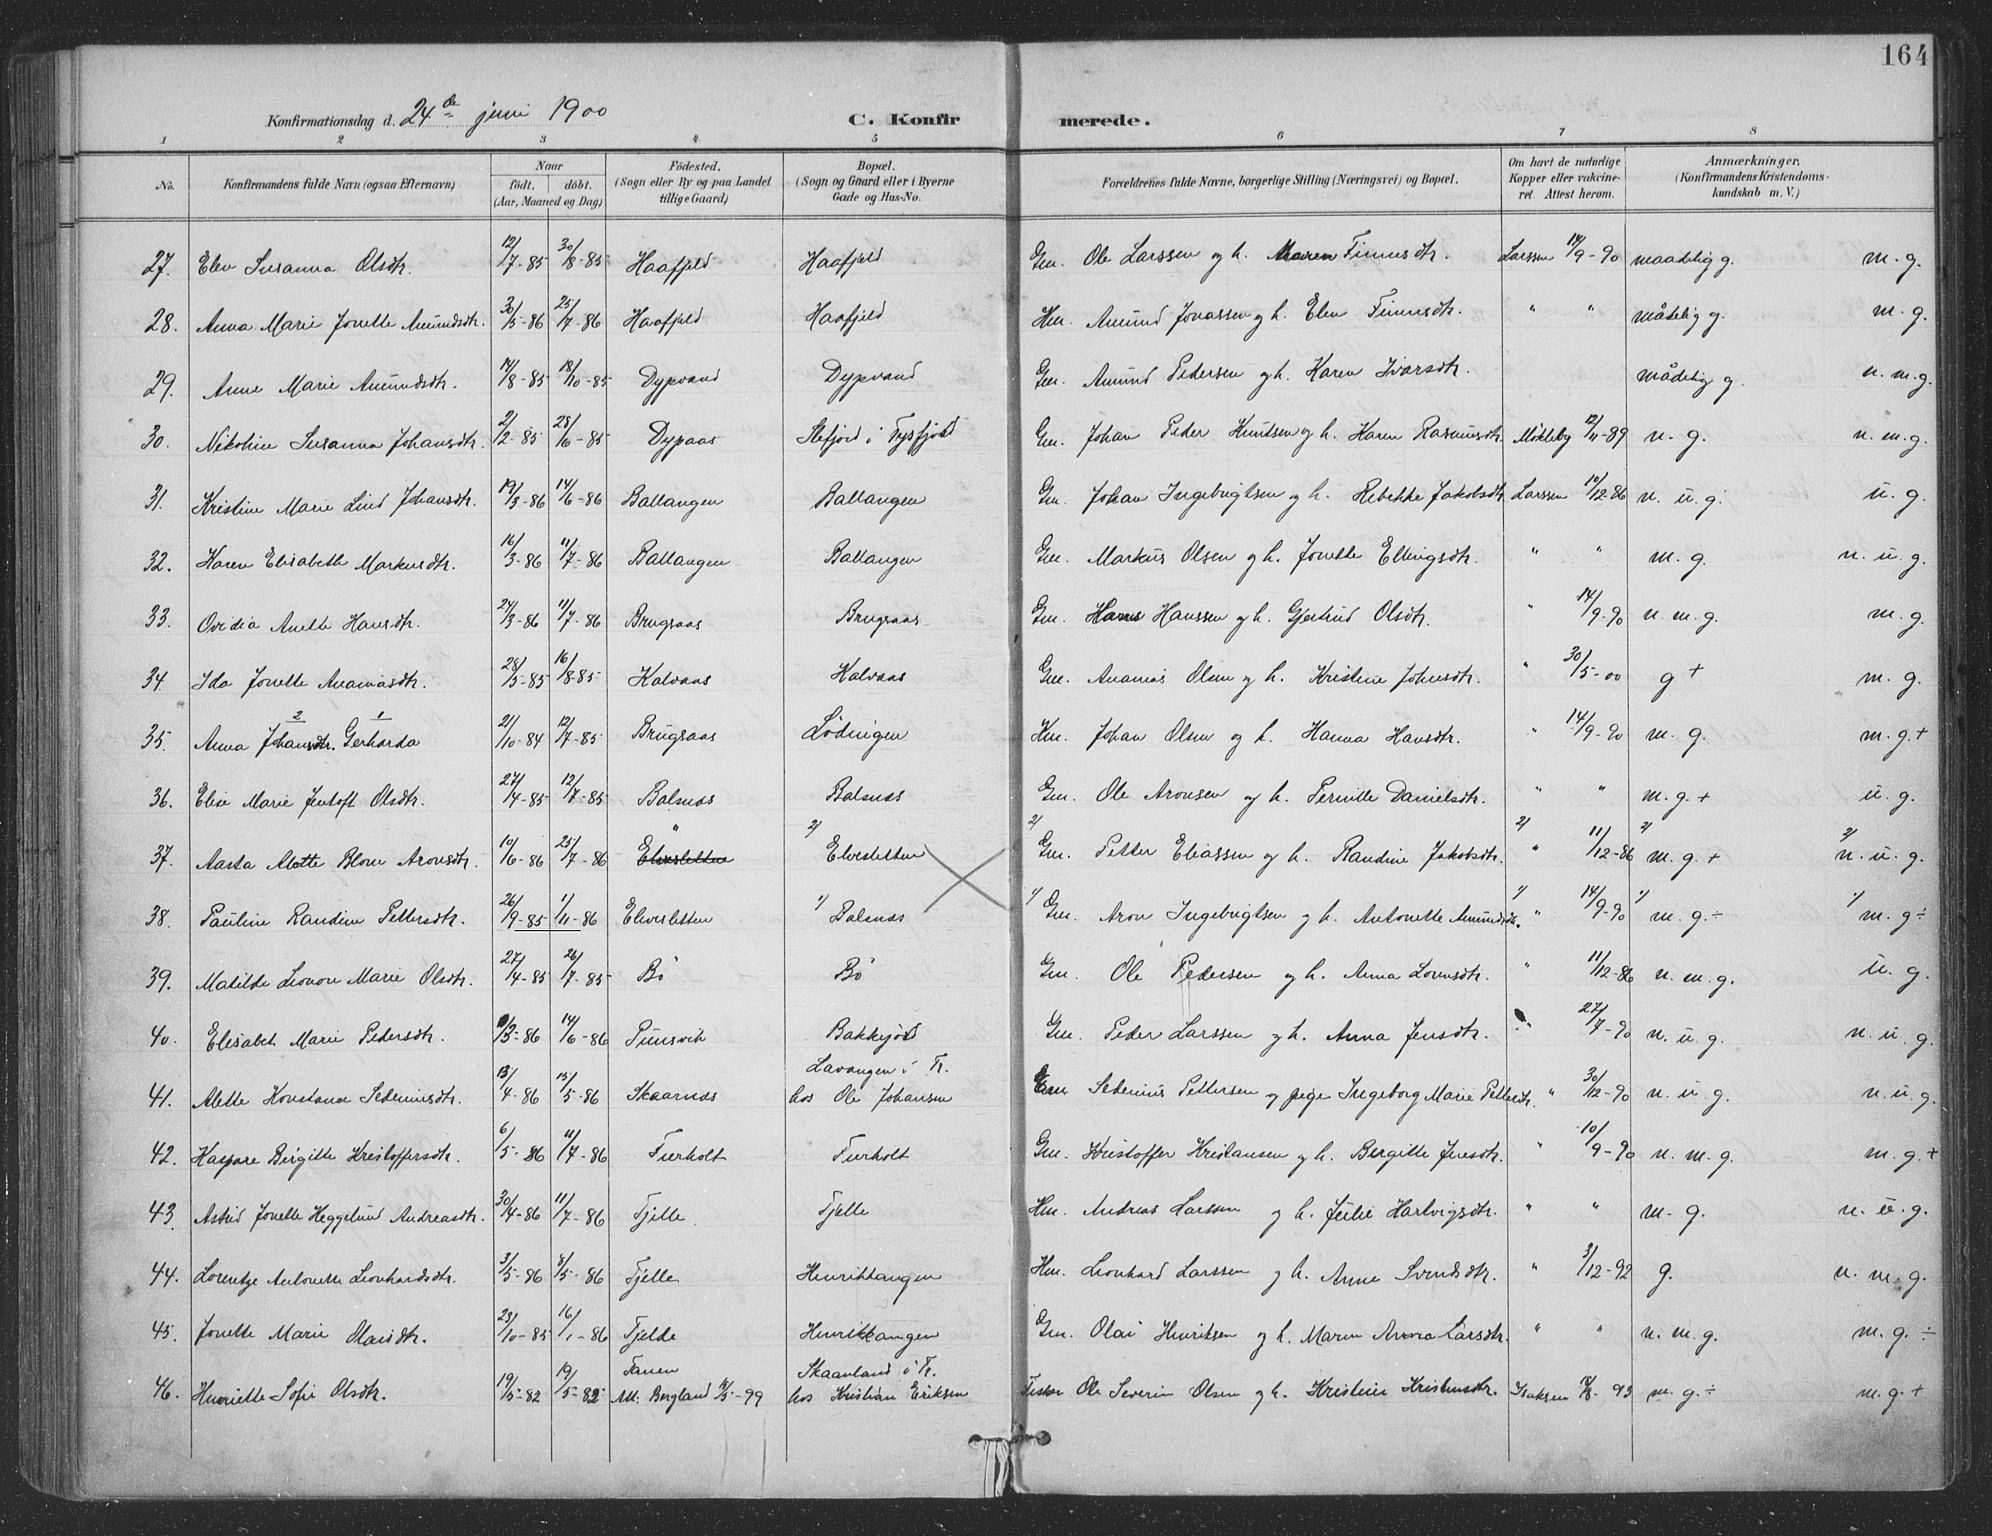 164
Konfirmationsdag d. 24de juni 1900 C. Konfirmerede.
1 2 3 4 5 6 7 8
No. Konfirmandens fulde Navn (ogsaa Efternavn) Naar födt. döbt. (Aar, Maaned og Dag) Födested. (Sogn eller By og paa Landet tillige Gaard) Bopæl. (Sogn og Gaard eller i Byerne Gade og Hus-No. Forældrenes fulde Navne, borgerlige Stilling (Næringsvei) og Bopæl. Om havt de naturlige Kopper eller vakcineret. Attest herom. Anmærkninger. (Konfirmandens Kristendomskundskab m. V.)
27. Elen Susanna Olsdtr. 12/7-85 30/8-85 Haafjeld Haafjeld Gm. Ole Larssen og h. Maren Finnsdtr. Larssen 14/9-90 maadelig g. m. g.
28. Anna Marie Jonette Amundsdtr. 30/5-86 25/7-86 Haafjeld Haafjeld Hm. Amund Jonassen og h. Elen Finnsdtr. " " mådelig g. m. g.
29. Anne Marie Amundsdtr. 14/8-85 18/10-85 Dypvand Dypvand Gm. Amund Pedersen og h. Karen Ivarsdtr. mådelig g. n. m. g.
30. Nikoline Susanna Johansdtr. 2/2-85 28/6-85 Dypaas Stefjord i Tysfjord Gm. Johan Peder Knutsen og h. Karen Rasmusdtr. Mökleby 12/11-89 n. g. n. m. g.
31. Kristine Marie Lind Johansdtr. 19/3-86 14/6-86 Ballangen Ballangen Gm. Johan Ingebrigtsen og h. Rebekke Jakobsdtr. Larssen 10/12-86 n. u. g. u. g.
32. Karen Elisabeth Markusdtr. 16/3-86 11/7-86 Ballangen Ballangen Gm. Markus Olsen og h. Jonette Ellingsdtr. " " m. g. n. u. g.
33. Ovidia Anette Hansdtr. 24/3-86 11/7-86 Brugsaas Brugsaas Gm. Hans Hanssen og h. Gjertrud Olsdtr. " 14/9-90 n. m. g. m. g.
34. Ida Jonette Ananiasdtr. 28/5-85 16/8-85 Kalvaas Kalvaas Gm. Ananias Olsen og h. Kristine Johnsdtr. " 30/5-00 g + m. g.
35. Anna Johansdtr. 2 Gerharda 1 21/10-84 12/7-85 Brugsaas Lödingen Hm. Johan Olsen og h. Hanna Hansdtr. " 14/9-90 m. g. m. g. +
36. Elise Marie Jentoft Olsdtr. 27/4-85 12/7-85 Balsnæs Balsnæs Gm. Ole Aronsen og h. Pernille Danielsdtr. " " m. g. + u. g.
37. Aasta Alette Blom Aronsdtr. 10/6-86 25/7-86 " Elvesletten 2/ Elvesletten 2/ Gm. Petter Eliassen og h. Randine Jakobsdtr. 2/ " 11/12-86 2/ m. g. + 2/ n. u. g.
38. Pauline Randine Pettersdtr. 26/9-85 1/11-86 Elvesletten 1/ Balsnæs 1/ Gm. Aron Ingebrigtsen og h. Antonette Amundsdtr. 1/ " 14/9-90 1/ m. g. ÷ 1/ m. g ÷
39. Matilde Leonore Marie Olsdtr. 27/4-85 26/7-85 Bö Bö Gm. Ole Pedersen og h. Anna Lornsdtr. " 11/12-86 n. m. g. u. g.
40. Elisabet Marie Pedersdtr. /3-86 14/6-86 Punsvik Bakkejord Gm. Peder Larssen og h. Anna Jensdtr. " 27/7-90 n. u. g. n. u. g.
41. Alette Konstanse Sedeniusdtr. 13/4-86 13/5-86 Skaarnæs Lavangen i Tr. hos Ole Johansen Em Sedenius Pettersen og pige Ingeborg Marie Pettersdtr. " 30/12-90 n. u. g. n. u. g.
42. Kaspare Bergitte Kristoffersdtr. 6/5-86 11/7-86 Fuerholt Fuerholt Gm. Kristoffer Kristiansen og h. Bergitte Jensdtr. " 10/9-90 n. m. g. m. g. +
43. Astrid Jonette Heggelund Andreasdtr. 30/4-86 11/7-86 Tjelle Tjelle Hm. Andreas Larssen og h. Julie Hartvigsdtr. " " m. g. n. u. g.
44. Lorentze Antonette Leonhardsdtr. 3/5-86 8/5-86 Tjelle Henriktangen Hm. Leonhard Larssen og h. Anne Svendsdtr. " 3/12-92 g. n. m. g.
45. Jonette Marie Olaisdtr. 23/10-85 16/1-86 Tjelde Henriktangen Gm. Olai Henriksen og h. Maren Anna Larsdtr. " " n. m. g. m. g. ÷
46. Henriette Sofie Olsdtr. 19/5-82 19/5-82 Tanen Att. Bergland /5-99 Skaanland i Tr. hos Kristian Eriksen Fisker Ole Severin Olsen og h. Kristine Kristensdtr. Isaksen /8-93 m. g. ÷ m. g. +